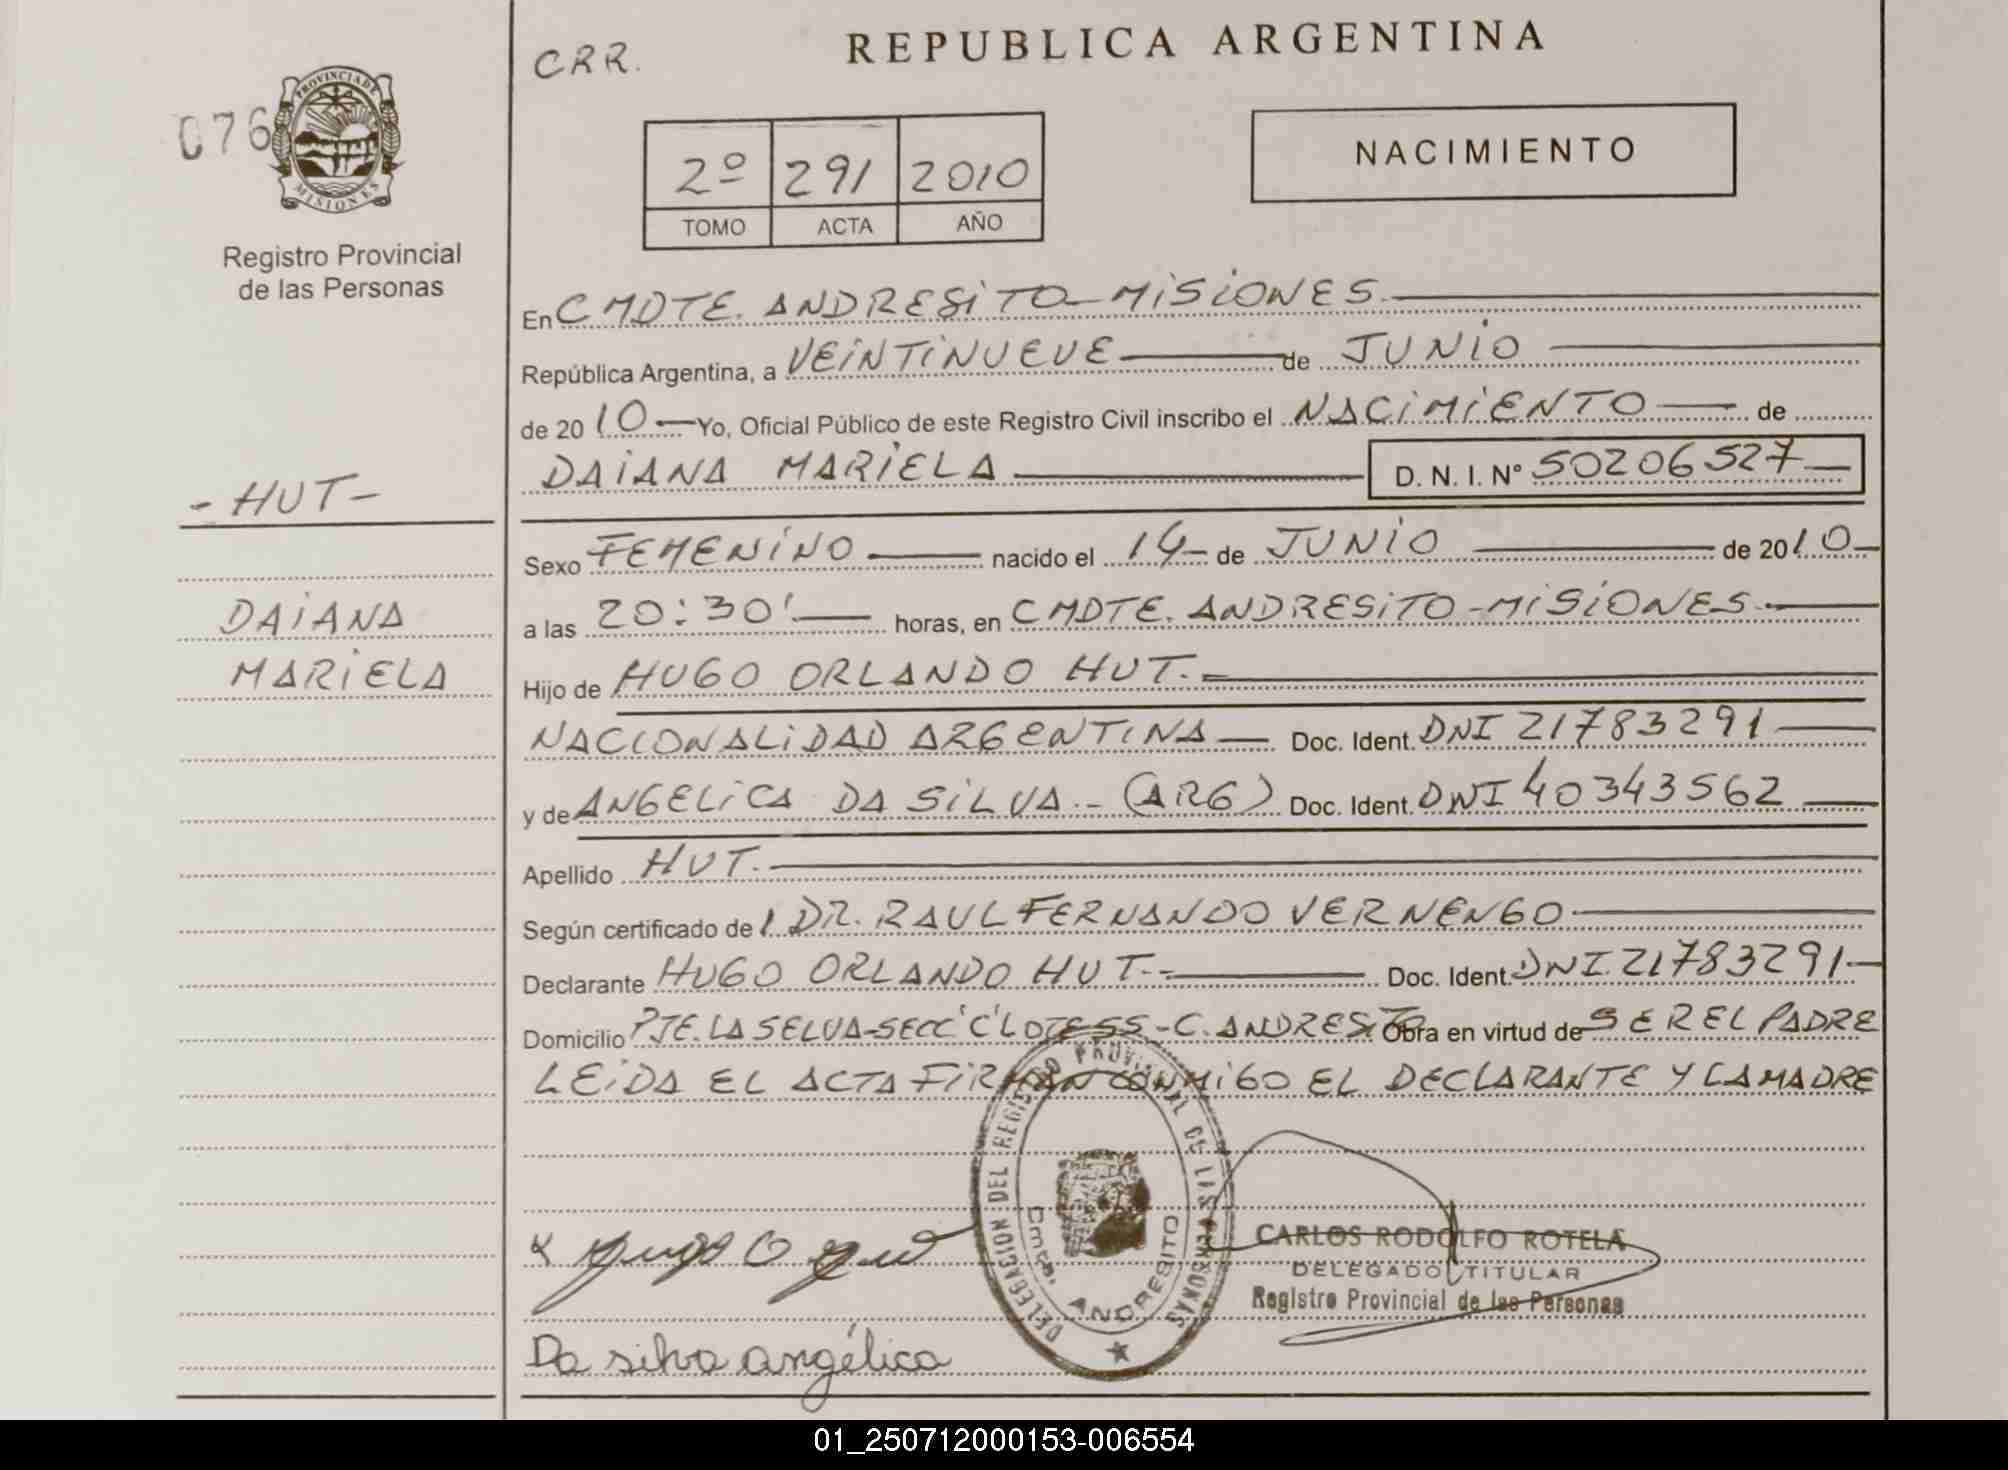 REPUBLICA ARGENTINA
CRR.
076
PROVINCIA DE MISIONES
Registro Provincial
de las Personas
2º 291 2010
TOMO ACTA AÑO
NACIMIENTO
En CMDTE. ANDRESITO - MISIONES.
República Argentina, a VEINTINUEVE de JUNIO
de 2010 Yo, Oficial Público de este Registro Civil inscribo el NACIMIENTO de
DAIANA MARIELA D. N. I. Nº 50206527
- HUT -
DAIANA
MARIELA
Sexo FEMENINO nacido el 14 de JUNIO de 2010
a las 20:30' horas, en CMDTE. ANDRESITO - MISIONES.
Hijo de HUGO ORLANDO HUT.
NACIONALIDAD ARGENTINA Doc. Ident. DNI 21783291
y de ANGELICA DA SILVA - (ARG) Doc. Ident. DNI 40343562
Apellido HUT.
Según certificado de l DR. RAUL FERNANDO VERNENGO
Declarante HUGO ORLANDO HUT. Doc. Ident. DNI. 21783291
Domicilio PJE. LA SELVA - SECC 'C' LOTE 55 - C. ANDRESITO Obra en virtud de SER EL PADRE
LEIDA EL ACTA FIRMAN CONMIGO EL DECLARANTE Y LA MADRE
DELEGACION DEL REGISTRO PROVINCIAL DE LAS PERSONAS
Cmte. ANDRESITO
CARLOS RODOLFO ROTELA
DELEGADO TITULAR
Registro Provincial de las Personas
Da silva angélica
01_250712000153-006554